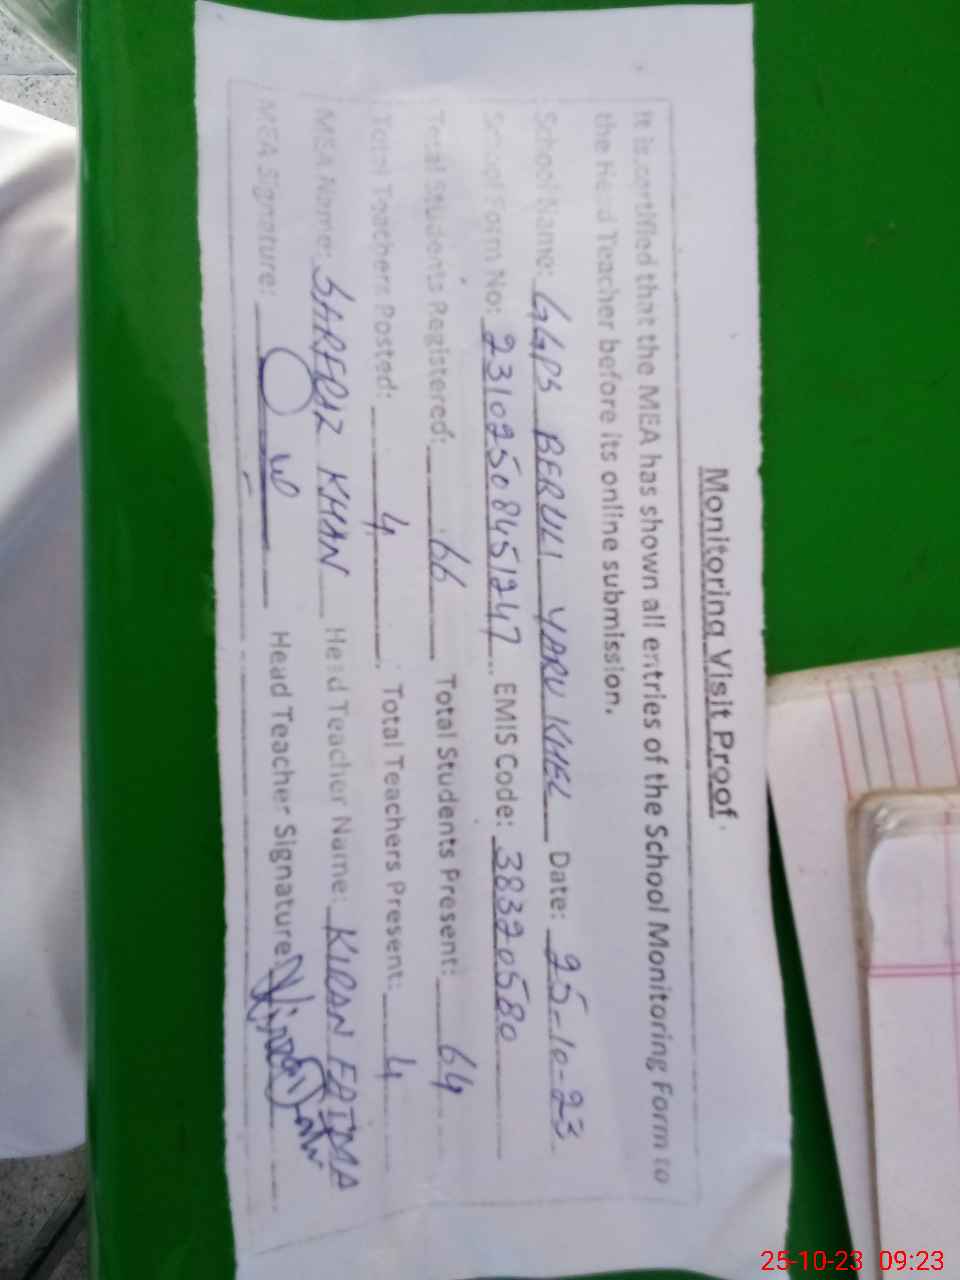 Monitoring Visit Proof.
It is certified that the MEA has shown all entries of the School Monitoring Form to
the Head Teacher before its online submission.
School Name: GGPS BERULI YARU KHEL Date: 25-10-23
School Form No: 23102508451247 EMIS Code: 38320580
Total Students Registered: 66 Total Students Present: 64
Total Teachers Posted: 4 Total Teachers Present: 4
MEA Name: SARFRAZ KHAN Head Teacher Name: KIRAN FATIMA
MEA Signature: Head Teacher Signature:
25-10-23 09:23